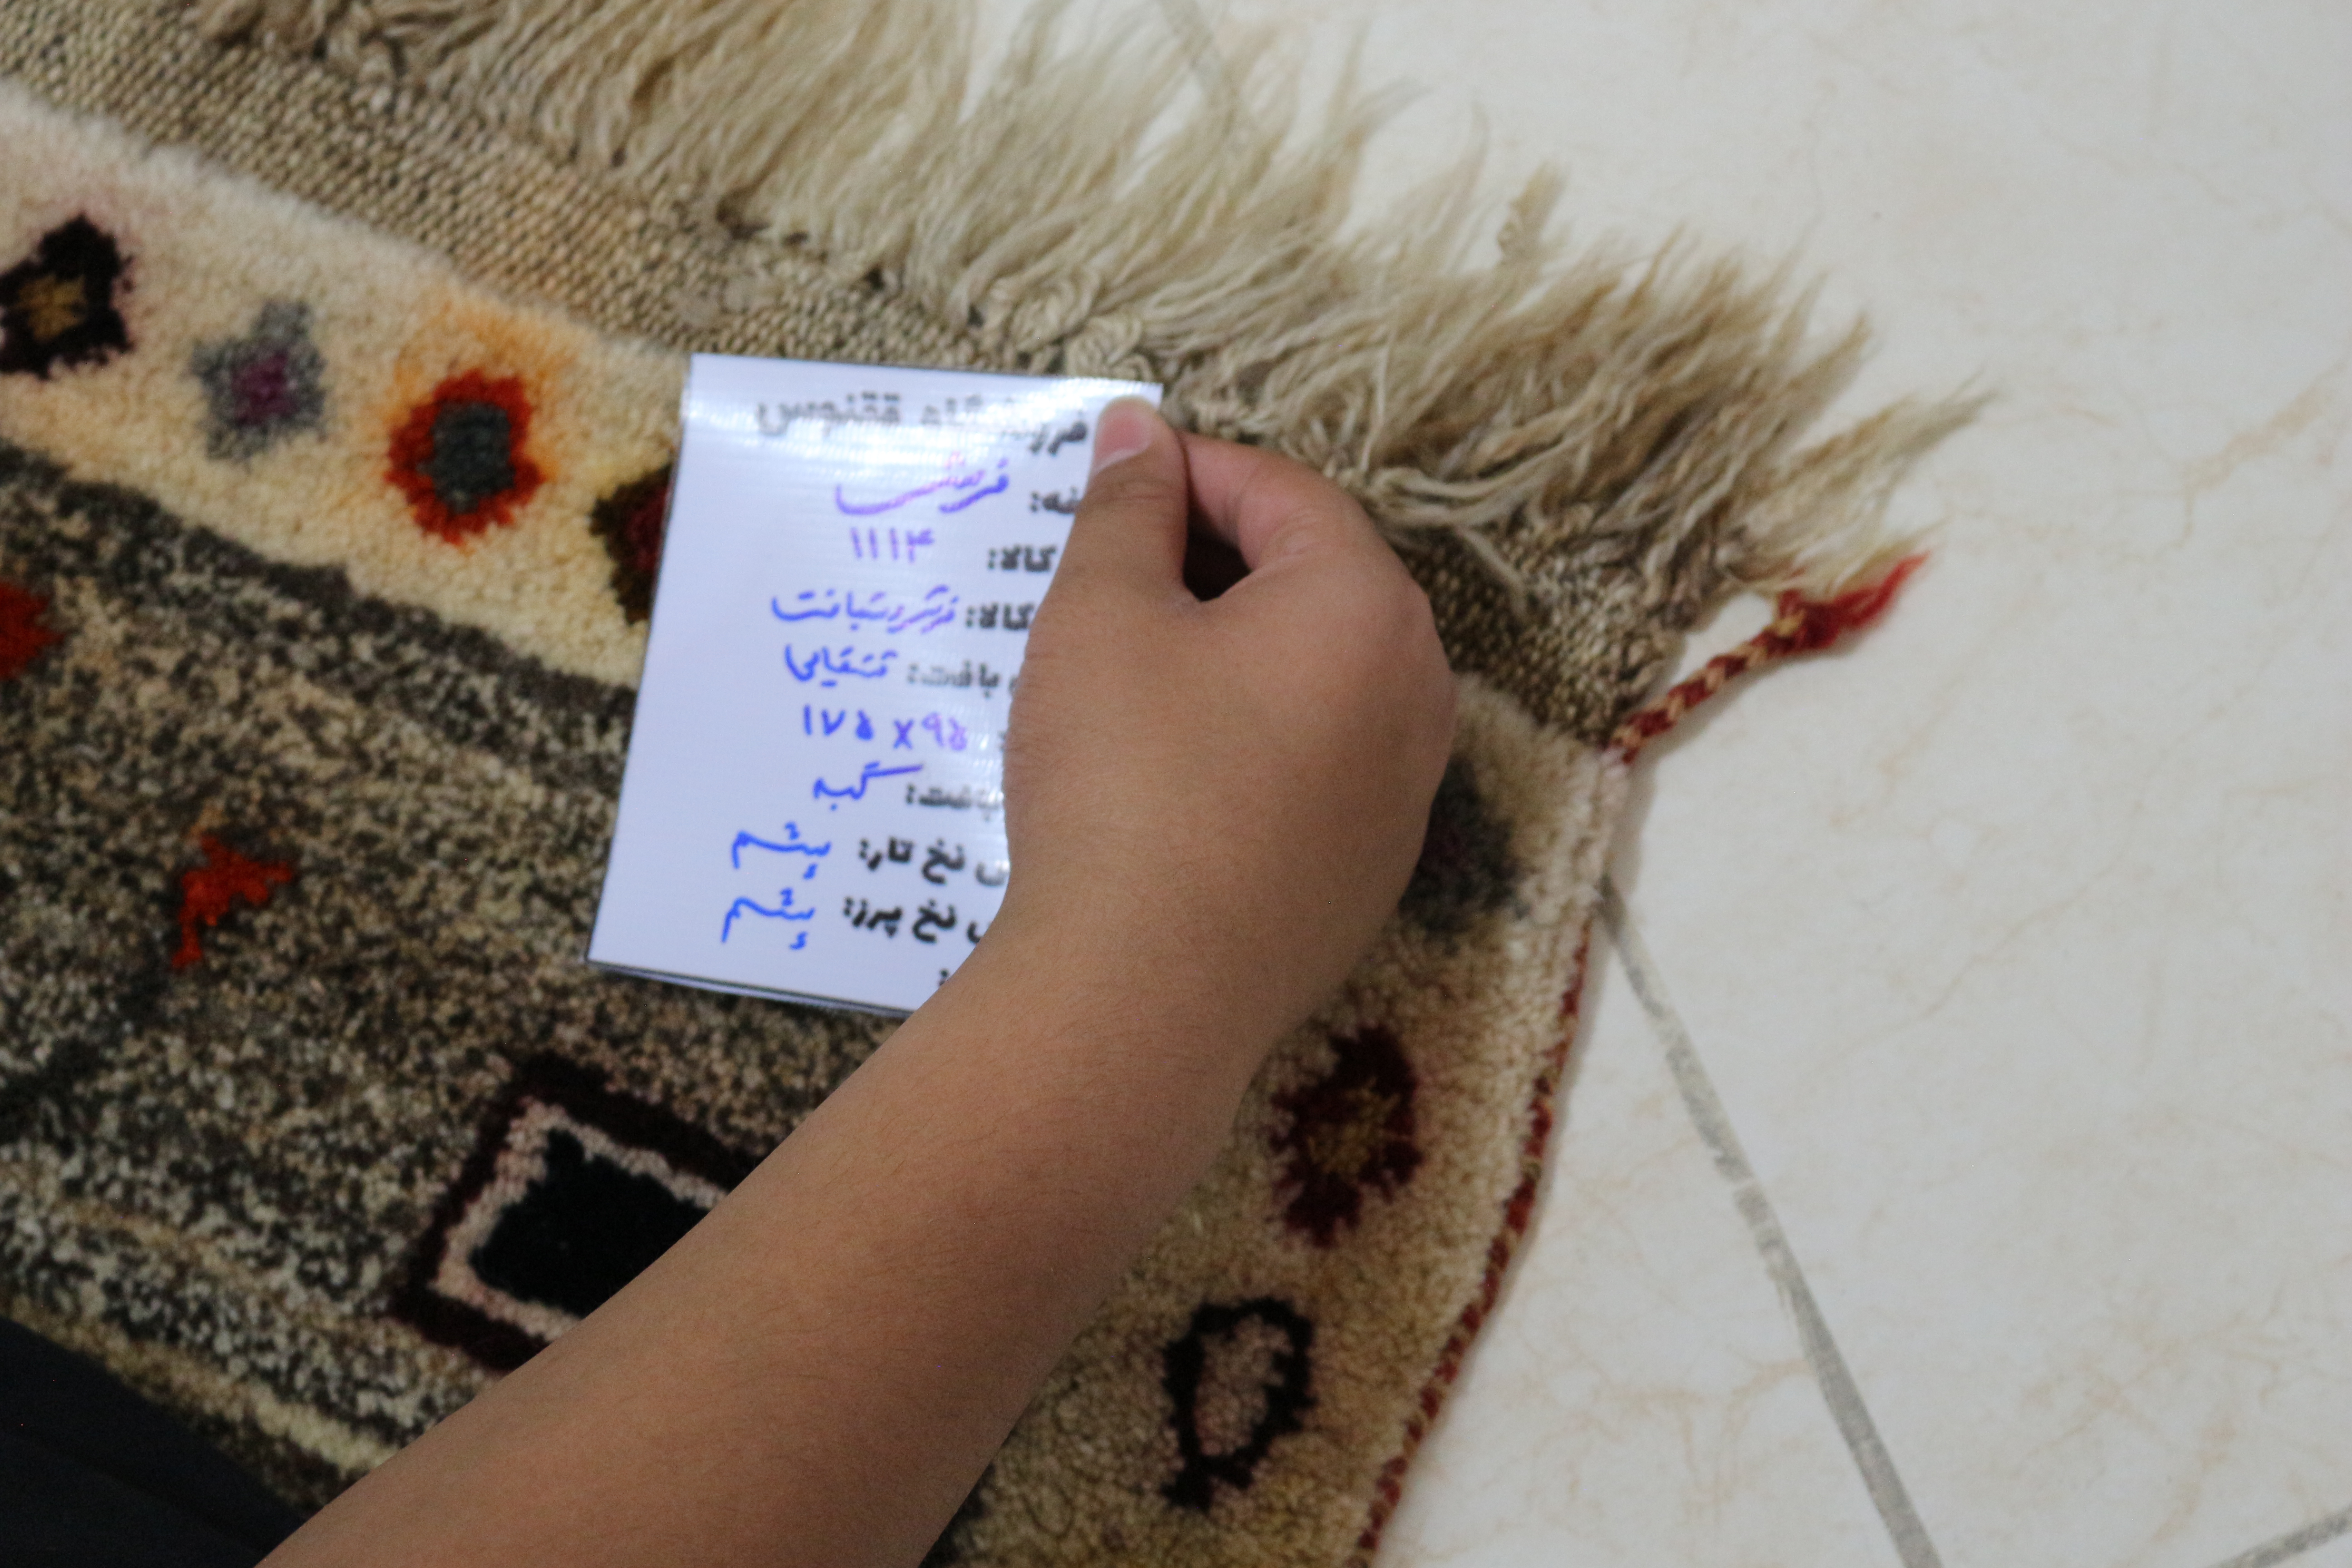 فروشگاه ققنوس
فرش
کالا: ۱۱۱۴
کالا: فرش دستبافت
بافت: قشقایی
۱۷۵ x ۹۵
بافت: گبه
نخ تار: پشم
نخ پرز: پشم